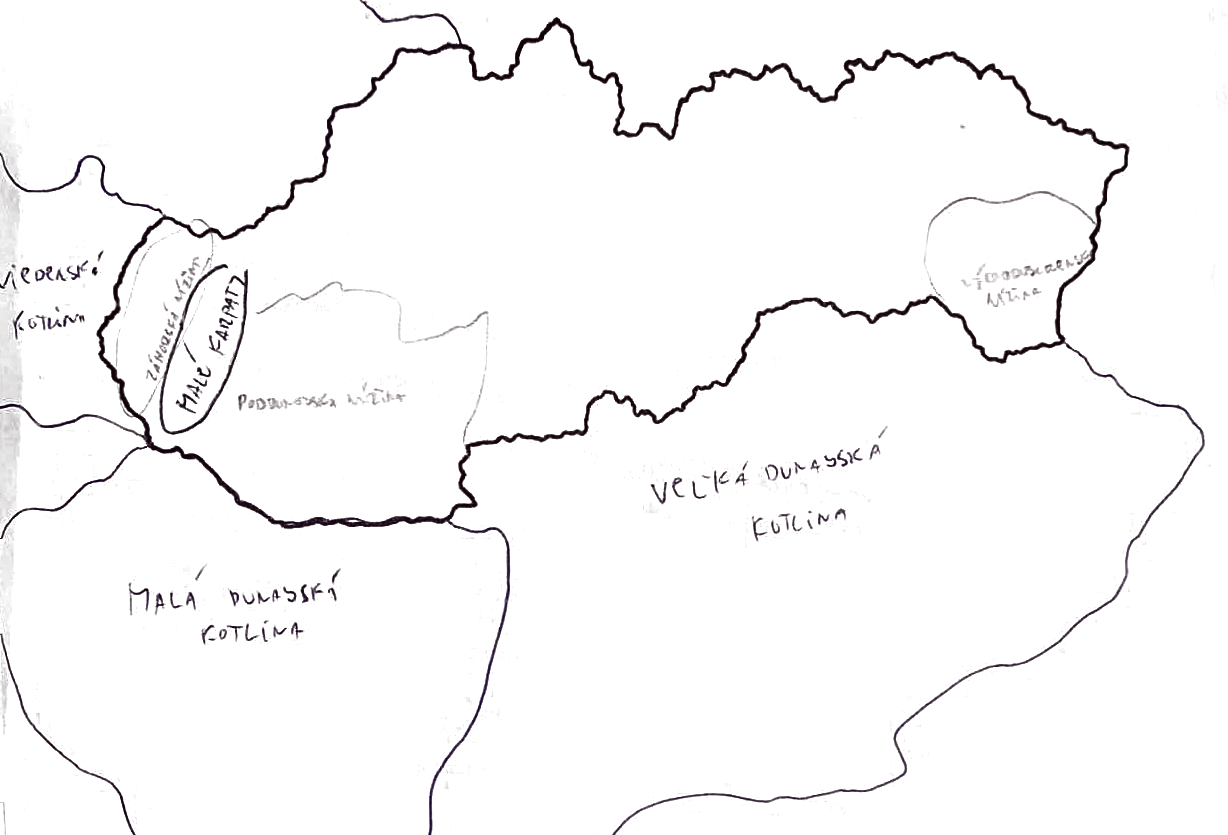 VIEDENSKÁ
KOTLINA
ZÁHORSKÁ NÍŽINA
MALÉ KARPATY
PODUNAJSKÁ NÍŽINA
VÝCHODOSLOVENSKÁ
NÍŽINA
VEĽKÁ DUNAJSKÁ
KOTLINA
MALÁ DUNAJSKÁ
KOTLINA